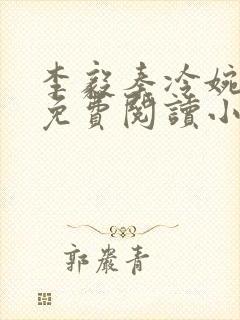 李毅秦冷婉
免費閱讀小
郭嚴青